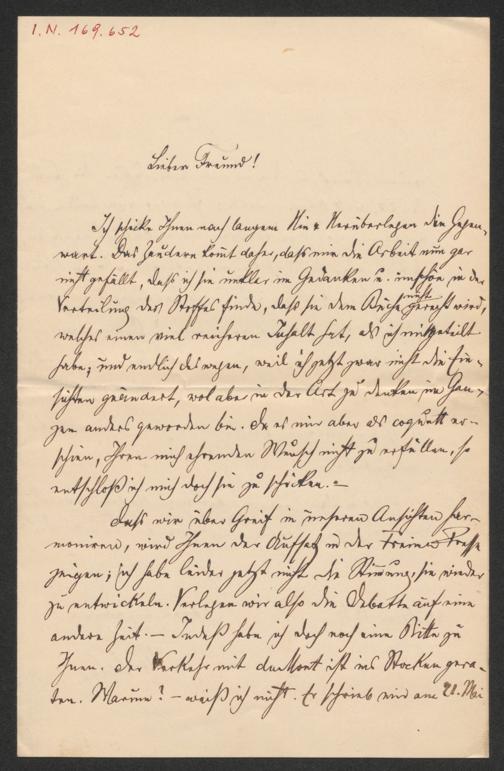 I.N. 169.652
Lieber Freund!
Ich schicke Ihnen nach langem Hin u Herüberlegen die Gegen-
wart. Das Zaudern kommt daher, dass mir die Arbeit nun gar
nicht gefällt, dass ich sie unklar im Gedanken u. unschön in der
Verteilung des Stoffes finde, dass sie dem Buch nicht gerecht wird,
welches einen viel reicheren Inhalt hat, als ich mitgeteilt
habe; und endlich deswegen, weil ich jetzt zwar nicht die Ein-
sichten geändert, wol aber in der Art zu denken im Gan-
zen anders geworden bin. Da es mir aber als coquett er-
schien, Ihren mich ehrenden Wunsch nicht zu erfüllen, so
entschloß ich mich doch sie zu schicken. –
Dass wir über Greif in unseren Ansichten har-
moniren, wird Ihnen der Aufsatz in der Freien Presse
zeigen; ich habe leider jetzt nicht die Stimmung, sie wieder
zu entwickeln. Verlegen wir also die Debatte auf eine
andere Zeit. – Indeß habe ich doch noch eine Bitte zu
Ihnen. Der Verkehr mit duMont ist ins Stocken gera-
ten. Warum? – weiß ich nicht. Er schrieb mir am 21. Mai